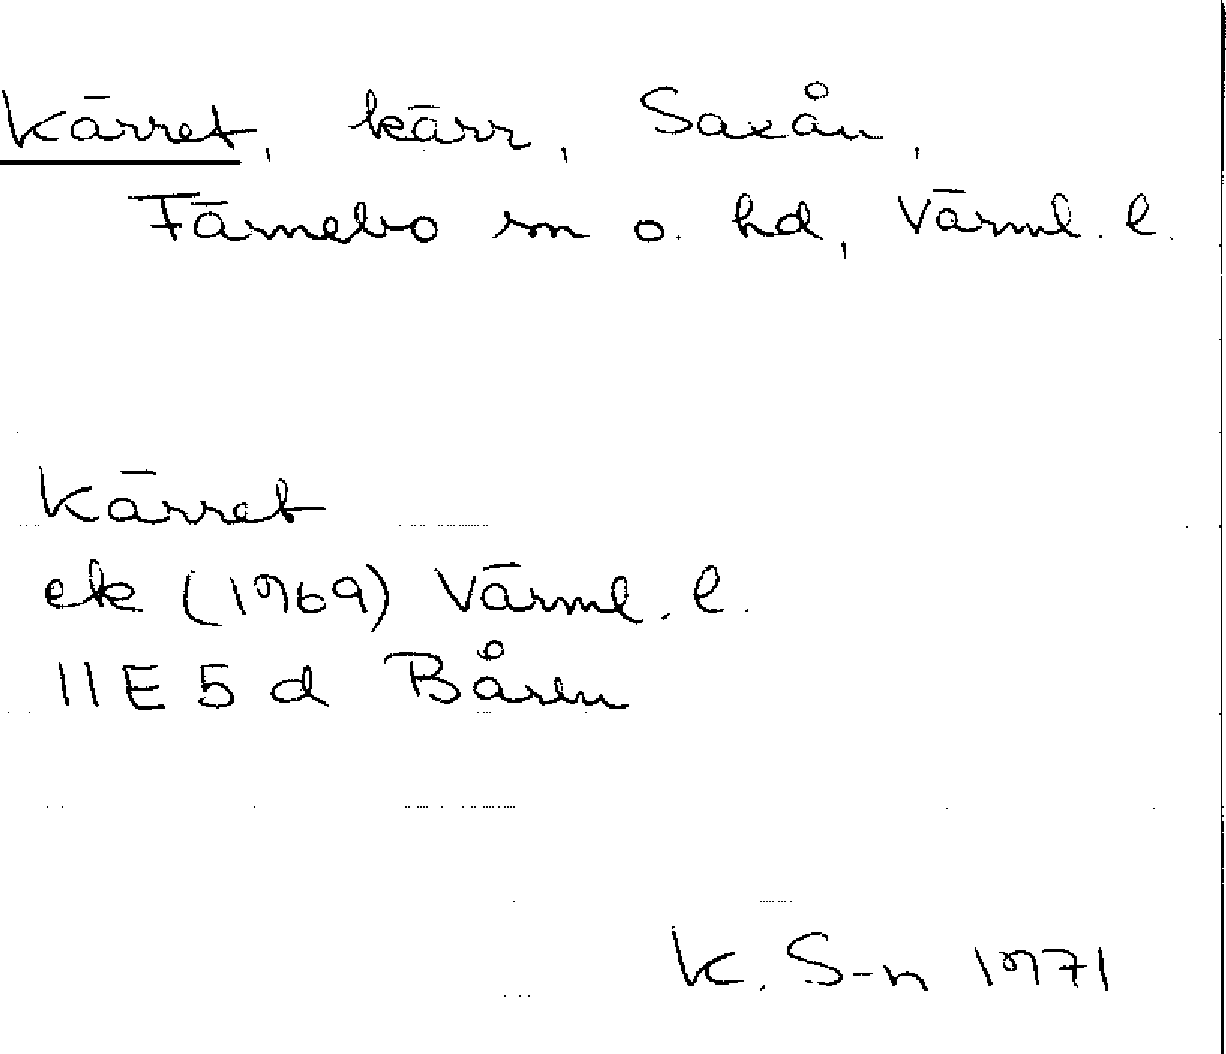 Kärret, kärr, Saxån,
Färnebo sn o. hd, Värml. l.
Kärret
ek (1969) Värml. l.
11E 5 d Båren
K. S-n 1971